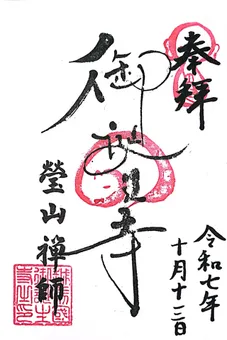 奉拝
御誕生寺
瑩山禅師
令和七年
十月十三日